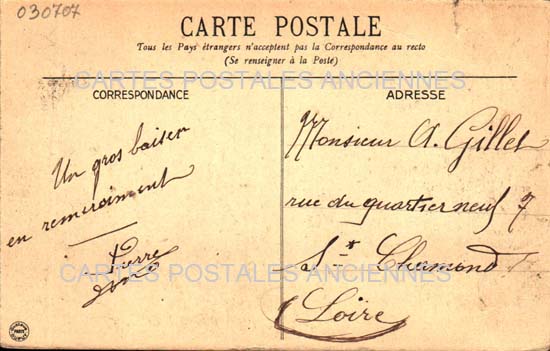 030707
CARTE POSTALE
Tous les Pays étrangers n'acceptent pas la Correspondance au recto
(Se renseigner à la Poste)
CARTES POSTALES ANCIENNES
CORRESPONDANCE
ADRESSE
Un gros baiser
en remerciment
Pierre
Monsieur A. Gillet
rue du quartier neuf 7
St Chamond
Loire
CARTES POSTALES ANCIENNES